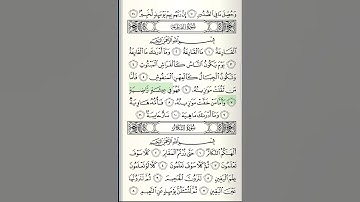 وَحُصِّلَ مَا فِي ٱلصُّدُورِ ١٠ إِنَّ رَبَّهُم بِهِمۡ يَوۡمَئِذٖ لَّخَبِيرُۢ ١١
سُورَةُ القَارِعَةِ
بِسۡمِ ٱللَّهِ ٱلرَّحۡمَٰنِ ٱلرَّحِيمِ
ٱلۡقَارِعَةُ ١ مَا ٱلۡقَارِعَةُ ٢ وَمَآ أَدۡرَىٰكَ مَا ٱلۡقَارِعَةُ
٣ يَوۡمَ يَكُونُ ٱلنَّاسُ كَٱلۡفَرَاشِ ٱلۡمَبۡثُوثِ ٤
وَتَكُونُ ٱلۡجِبَالُ كَٱلۡعِهۡنِ ٱلۡمَنفُوشِ ٥ فَأَمَّا
مَن ثَقُلَتۡ مَوَٰزِينُهُۥ ٦ فَهُوَ فِي عِيشَةٖ رَّاضِيَةٖ
٧ وَأَمَّا مَنۡ خَفَّتۡ مَوَٰزِينُهُۥ ٨ فَأُمُّهُۥ هَاوِيَةٞ
٩ وَمَآ أَدۡرَىٰكَ مَا هِيَهۡ ١٠ نَارٌ حَامِيَةُۢ ١١
سُورَةُ التَّكَاثُرِ
بِسۡمِ ٱللَّهِ ٱلرَّحۡمَٰنِ ٱلرَّحِيمِ
أَلۡهَىٰكُمُ ٱلتَّكَاثُرُ ١ حَتَّىٰ زُرۡتُمُ ٱلۡمَقَابِرَ ٢ كَلَّا سَوۡفَ
تَعۡلَمُونَ ٣ ثُمَّ كَلَّا سَوۡفَ تَعۡلَمُونَ ٤ كَلَّا لَوۡ تَعۡلَمُونَ
عِلۡمَ ٱلۡيَقِينِ ٥ لَتَرَوُنَّ ٱلۡجَحِيمَ ٦ ثُمَّ لَتَرَوُنَّهَا
عَيۡنَ ٱلۡيَقِينِ ٧ ثُمَّ لَتُسۡـَٔلُنَّ يَوۡمَئِذٍ عَنِ ٱلنَّعِيمِ ٨